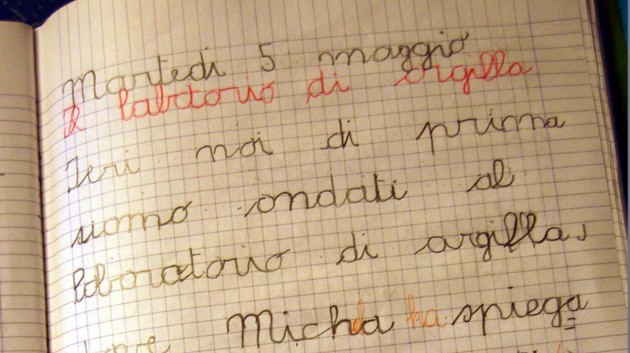 Martedi 5 maggio
Il labotorio di argilla
Ieri noi di prima
siamo andati al
laboratorio di argilla,
Micha ha spiega